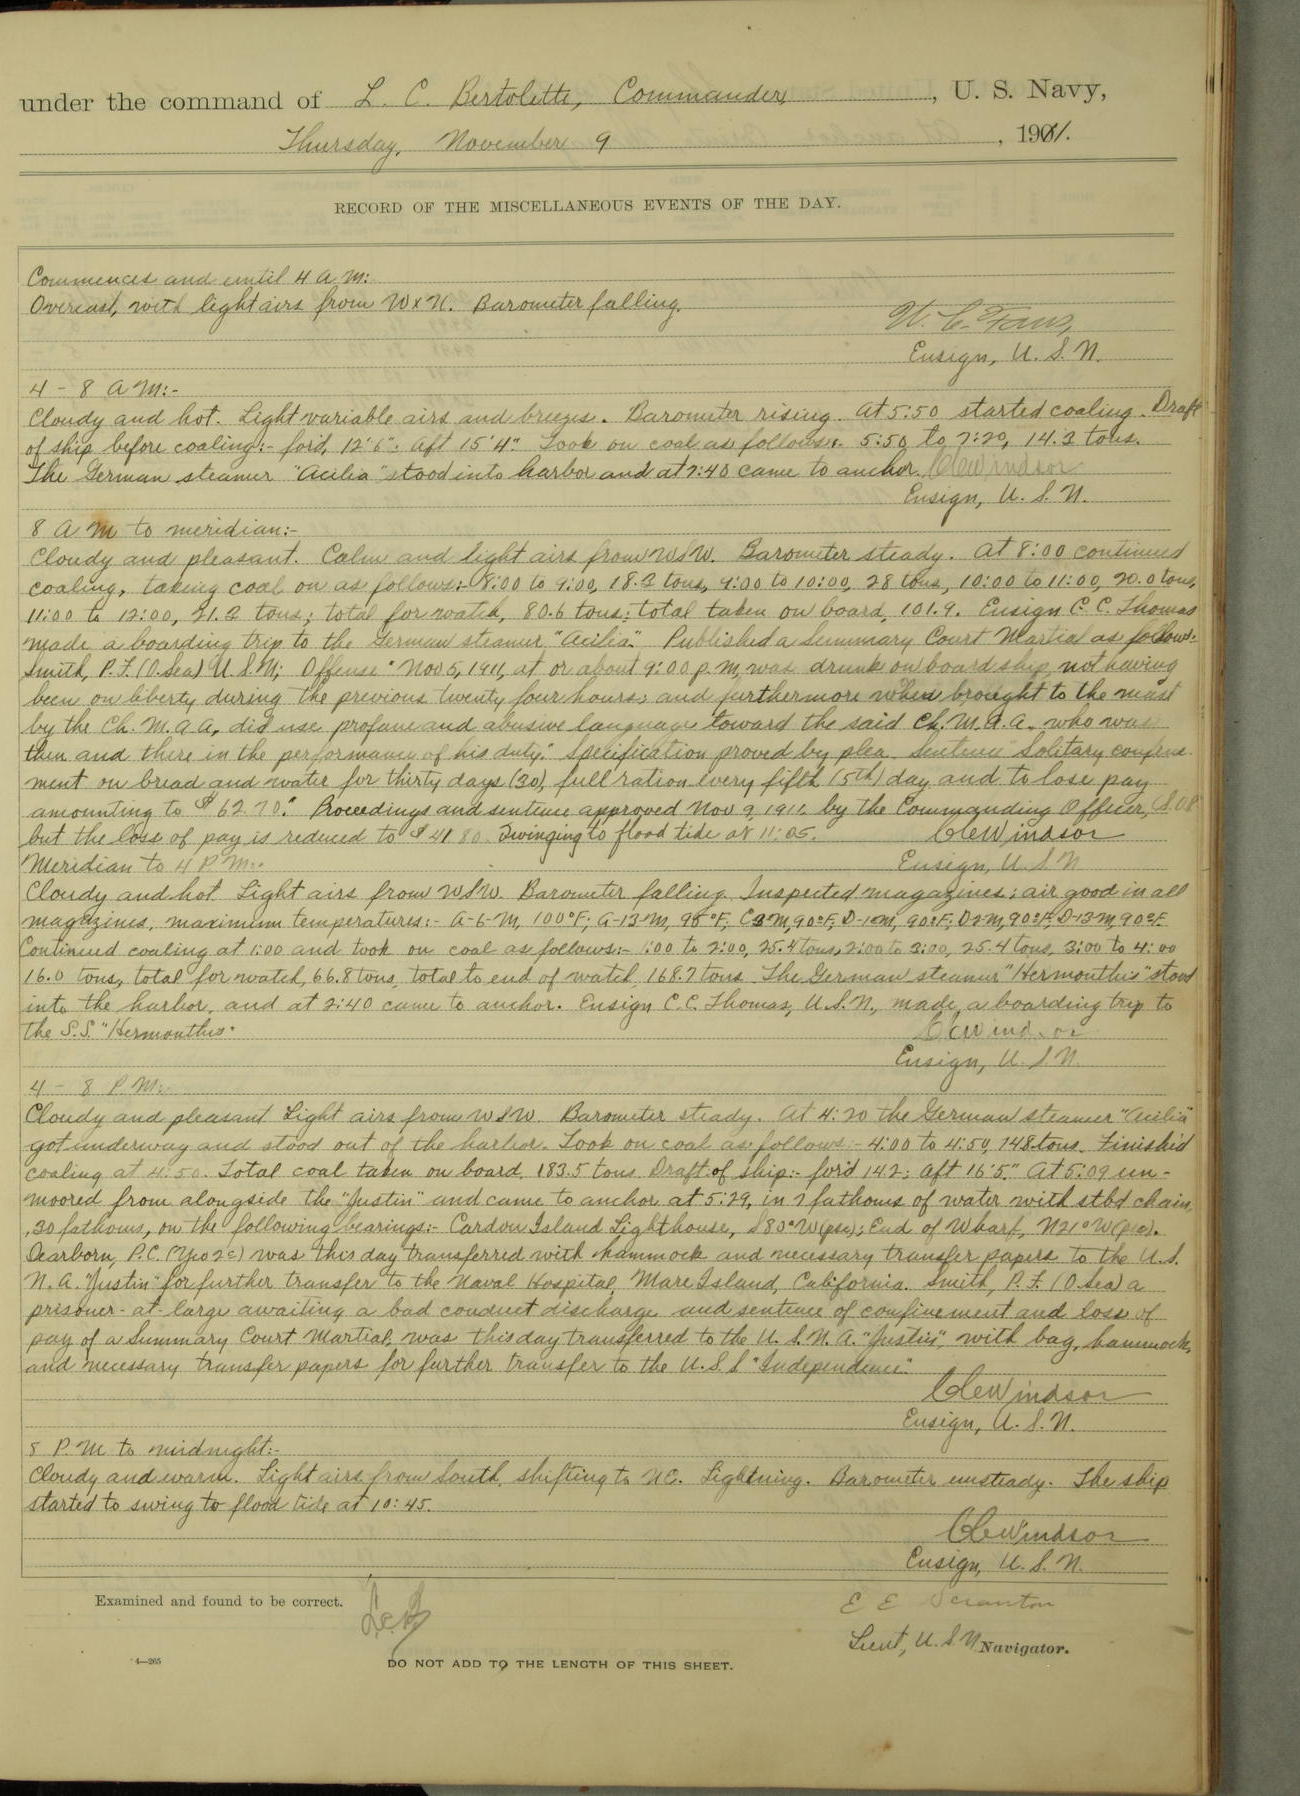 under the command of L. C. Bertolette, Commander, U. S. Navy,
Thursday, November 9, 1911.
RECORD OF THE MISCELLANEOUS EVENTS OF THE DAY.
Commences and until 4 A.M:
Overcast, with light airs from WxN. Barometer falling.
Ensign, U. S. N.
4 - 8 A M:-
Cloudy and hot. Light variable airs and breezes. Barometer rising. At 5:50 started coaling. Draft
of ship before coaling:- for'd, 12'6"; aft 15'4". Took on coal as follows:- 5:50 to 7:20, 14.3 tons.
The German steamer "Acilia" stood into harbor and at 7:40 came to anchor. CCWindsor
Ensign, U. S. N.
8 A M to meridian:-
Cloudy and pleasant. Calm and light airs from WSW. Barometer steady. At 8:00 continued
coaling, taking coal on as follows:- 8:00 to 9:00, 18.3 tons, 9:00 to 10:00, 28 tons, 10:00 to 11:00, 20.0 tons,
11:00 to 12:00, 21.3 tons; total for watch, 80.6 tons; total taken on board, 101.9. Ensign C. C. Thomas
made a boarding trip to the German steamer "Acilia". Published a Summary Court Martial as follows:-
Smith, P. F. (O.Sea) U.S.N; Offense "Nov 5, 1911, at or about 9:00 p.m, was drunk on board ship, not having
been on liberty during the previous twenty four hours; and furthermore when brought to the mast
by the Ch. M. A A, did use profane and abusive language toward the said Ch. M. A. A. who was
then and there in the performance of his duty." Specification proved by plea. Sentence "Solitary confine-
ment on bread and water for thirty days (30), full ration every fifth (5th) day and to lose pay
amounting to $62.70." Proceedings and sentence approved Nov 9, 1911. by the Commanding Officer,
but the loss of pay is reduced to $41.80. Swinging to flood tide at 11:05. CCWindsor
Meridian to 4 P M:- Ensign, U. S. N
Cloudy and hot. Light airs from WSW. Barometer falling. Inspected magazines; air good in all
magazines, maximum temperatures:- A-6-M, 100°F; A-13-M, 98°F; C3M, 90°F; D-10M, 90°F; D2M, 90°F; D-13-M, 90°F.
Continued coaling at 1:00 and took on coal as follows:- 1:00 to 2:00, 25.4 tons, 2:00 to 3:00, 25.4 tons, 3:00 to 4:00
16.0 tons, total for watch, 66.8 tons, total to end of watch, 168.7 tons. The German steamer "Hermonthis" stood
into the harbor, and at 2:40 came to anchor. Ensign C. C. Thomas, U.S.N., made a boarding trip to
the S.S. "Hermonthis". CCWindsor
Ensign, U. S N.
4 - 8 P M:-
Cloudy and pleasant. Light airs from WSW. Barometer steady. At 4:20 the German steamer "Acilia"
got underway and stood out of the harbor. Took on coal as follows:- 4:00 to 4:50, 14.8 tons. Finished
coaling at 4:50. Total coal taken on board, 183.5 tons. Draft of ship:- for'd 14.2; aft 16'5". At 5:09 un-
moored from alongside the "Justin" and came to anchor at 5:29, in 7 fathoms of water with stbd chain,
30 fathoms, on the following bearings:- Cardon Island Lighthouse, S80°W(psc); End of Wharf, N21°W(psc).
Dearborn, P.C. (Yeo 2c) was this day transferred with hammock and necessary transfer papers to the U.S.
N. A. "Justin" for further transfer to the Naval Hospital, Mare Island, California. Smith, P. F. (O.Sea) a
prisoner-at-large awaiting a bad conduct discharge and sentence of confinement and loss of
pay of a Summary Court Martial, was this day transferred to the U. S. N. A. "Justin", with bag, hammock,
and necessary transfer papers for further transfer to the U.S.S "Independence".
CCWindsor
Ensign, U. S. N.
8 P.M to midnight:-
Cloudy and warm. Light airs from South, shifting to NE. Lightning. Barometer unsteady. The ship
started to swing to flood tide at 10:45.
CCWindsor
Ensign, U. S. N.
Examined and found to be correct. E E Scranton
Lieut, U. S N Navigator.
4—265
DO NOT ADD TO THE LENGTH OF THIS SHEET.